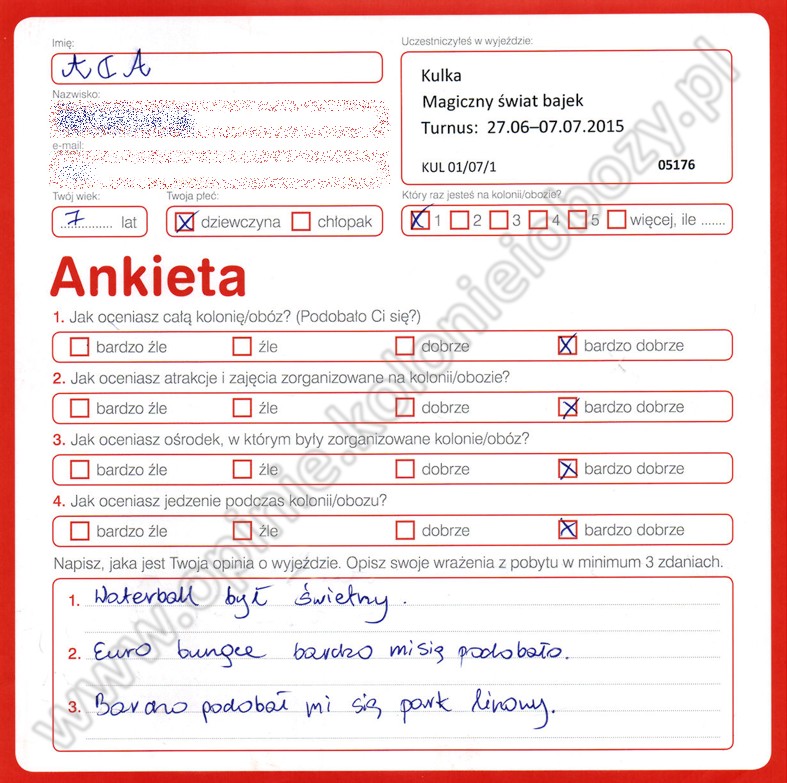 Imię:
Uczestniczyłeś w wyjeździe:
Kulka
Magiczny świat bajek
Turnus: 27.06–07.07.2015
KUL 01/07/1 05176
Nazwisko:
e-mail:
Twój wiek: Twoja płeć: Który raz jesteś na kolonii/obozie?
7 lat dziewczyna chłopak 1 2 3 4 5 więcej, ile .......
Ankieta
1. Jak oceniasz całą kolonię/obóz? (Podobało Ci się?)
bardzo źle źle dobrze bardzo dobrze
2. Jak oceniasz atrakcje i zajęcia zorganizowane na kolonii/obozie?
bardzo źle źle dobrze bardzo dobrze
3. Jak oceniasz ośrodek, w którym były zorganizowane kolonie/obóz?
bardzo źle źle dobrze bardzo dobrze
4. Jak oceniasz jedzenie podczas kolonii/obozu?
bardzo źle źle dobrze bardzo dobrze
Napisz, jaka jest Twoja opinia o wyjeździe. Opisz swoje wrażenia z pobytu w minimum 3 zdaniach.
1. Waterball był świetny.
2. Euro bungee bardzo mi się podobało.
3. Bardzo podobał mi się park linowy.
www.opinie.kolonieiobozy.pl